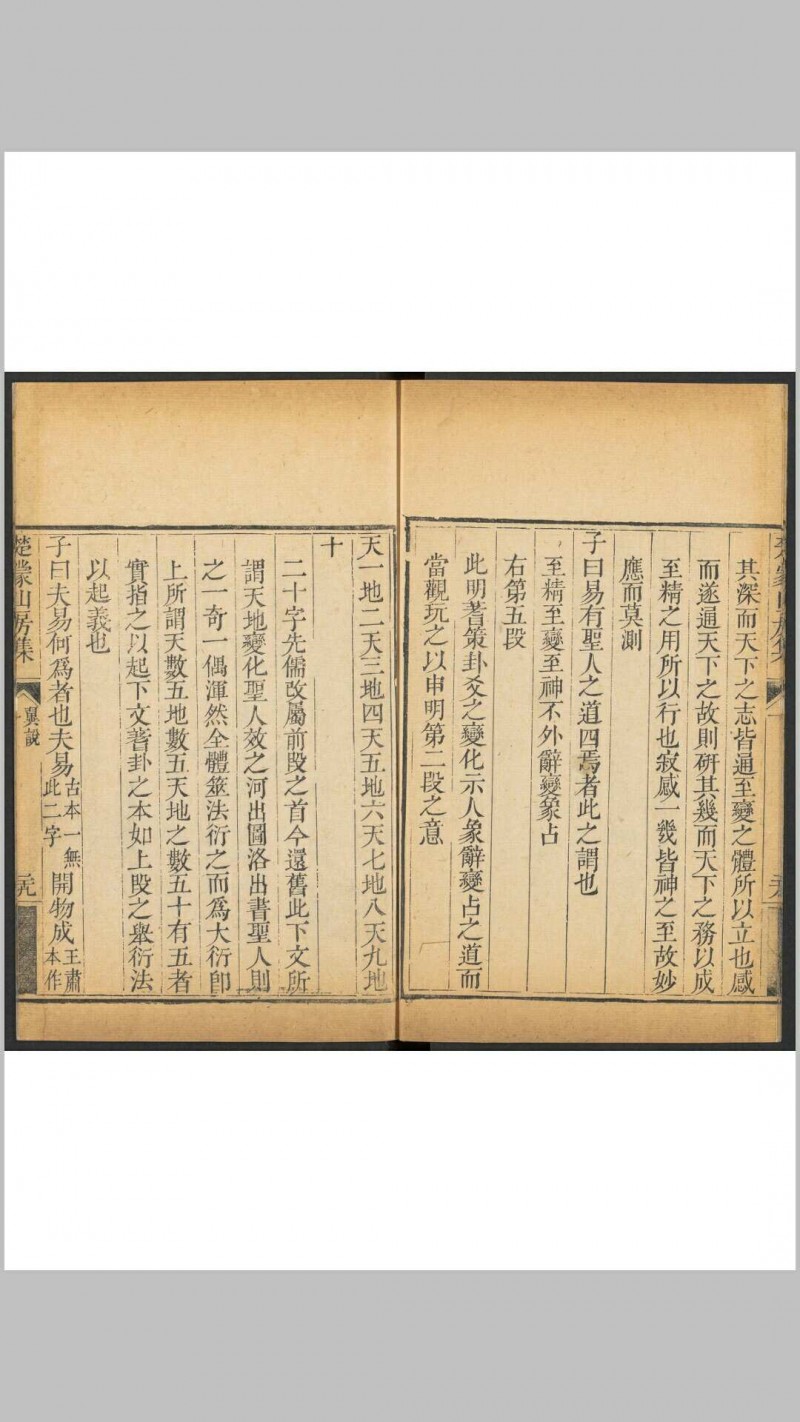 其深而天下之志皆通至變之體所以立也感
而遂通天下之故則硏其幾而天下之務以成
至精之用所以行也寂感一幾皆神之至故妙
應而莫測
子曰易有聖人之道四焉者此之謂也
至精至變至神不外辭變象占
右第五段
此明蓍策卦爻之變化示人象辭變占之道而
當觀玩之以申明第二段之意
天一地二天三地四天五地六天七地八天九地
十
二十字先儒改屬前段之首今還舊此下文所
謂天地變化聖人效之河出圖洛出書聖人則
之一奇一偶渾然全體筮法衍之而爲大衍卽
上所謂天數五地數五天地之數五十有五者
實指之以起下文蓍卦之本如上段之舉衍法
以起義也
子曰夫易何爲者也夫易古本一無此二字開物成王肅本作
楚蒙山房集 翼說